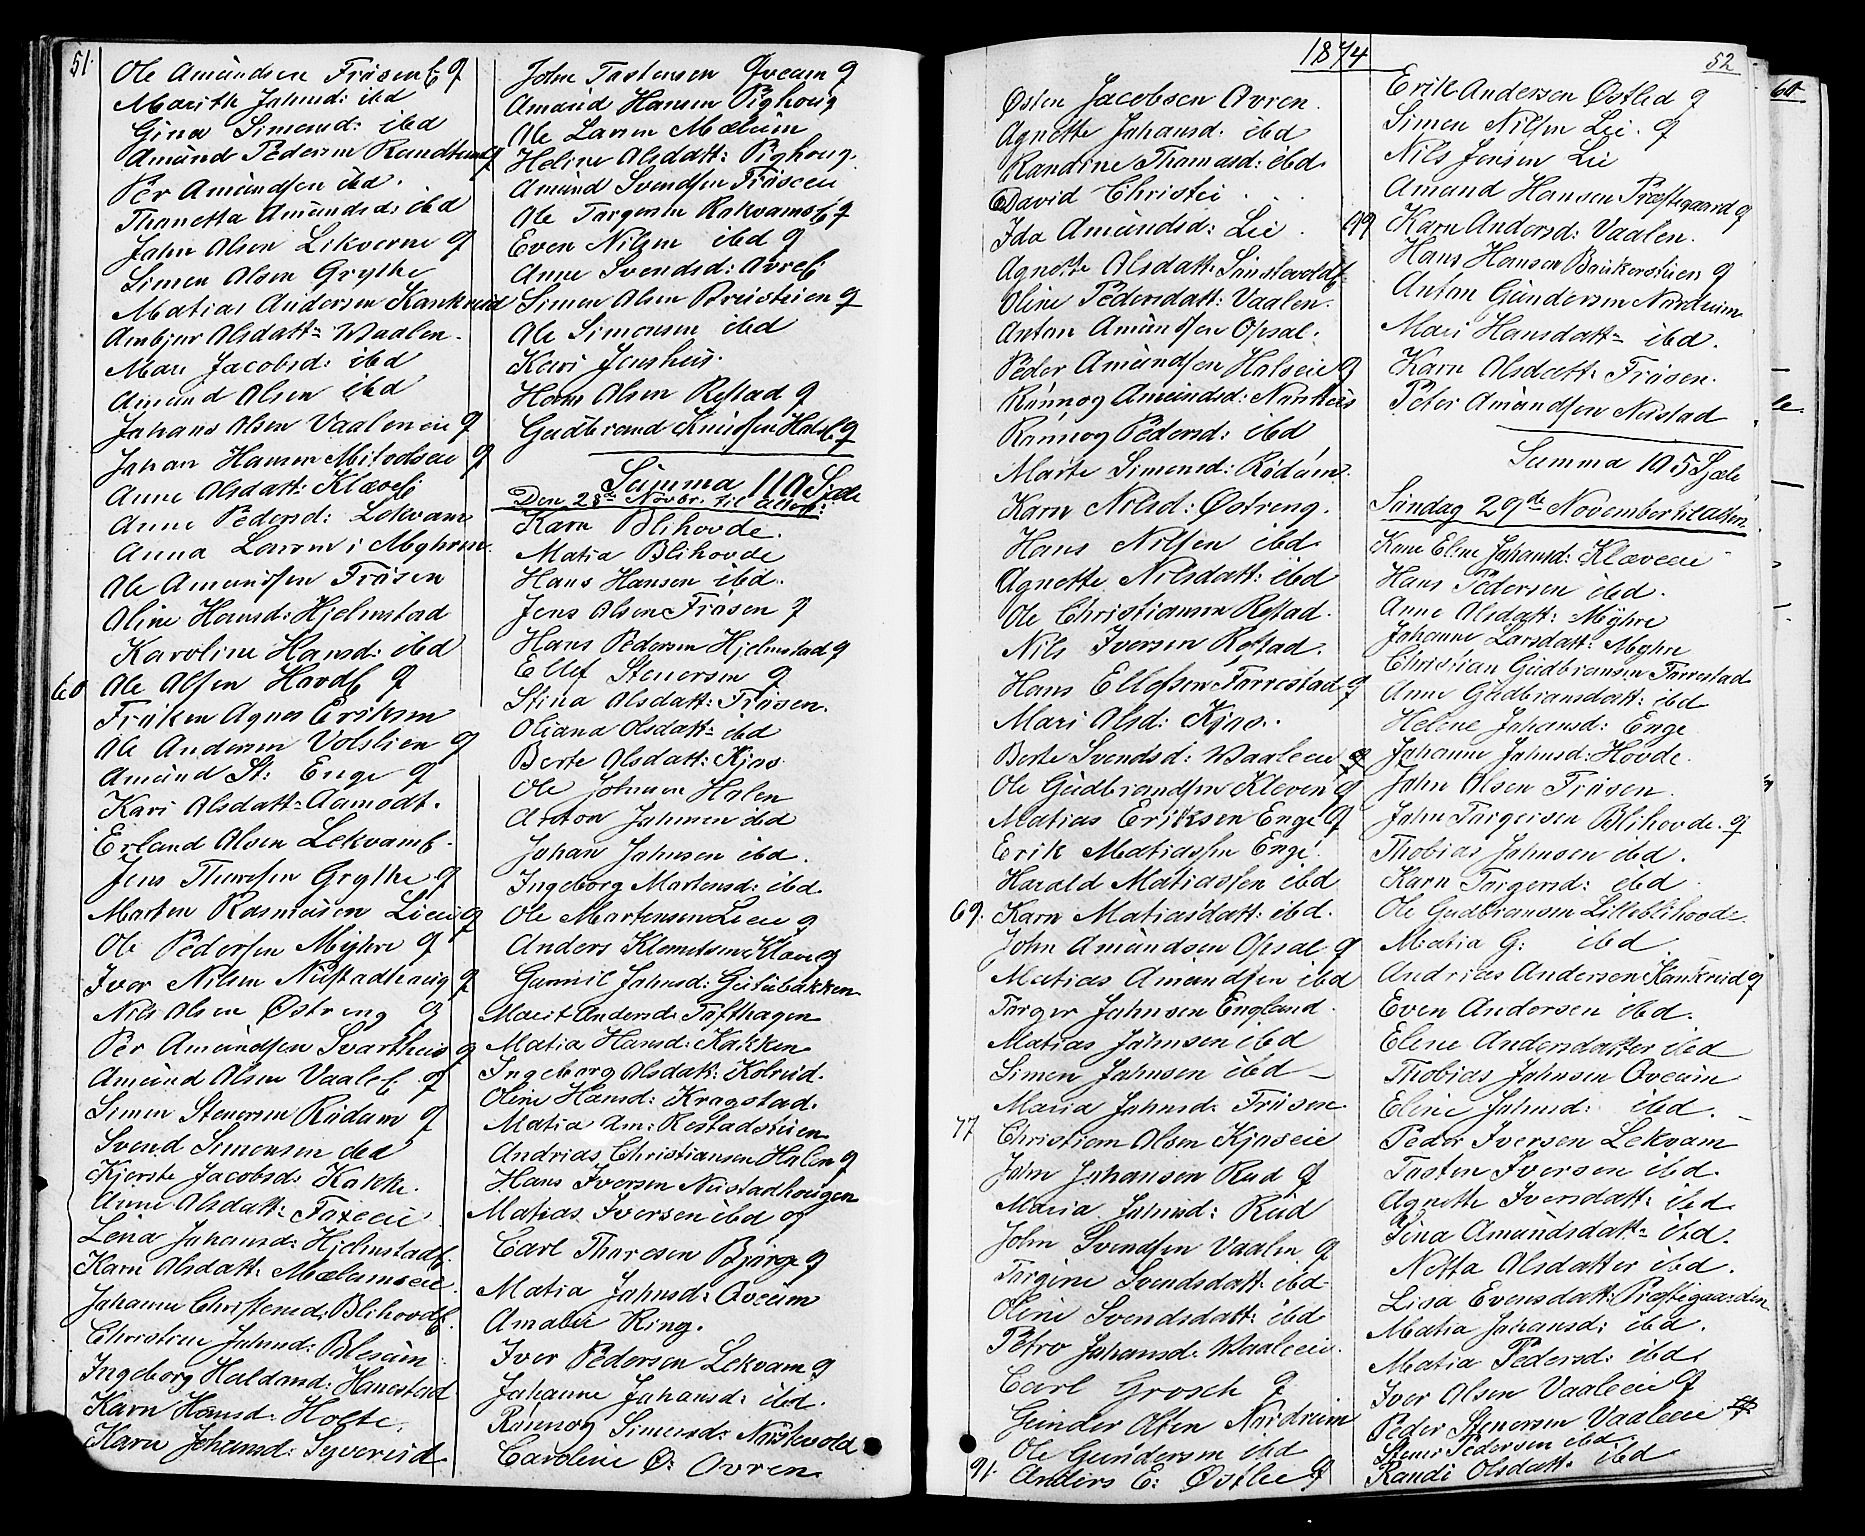 51.
Ole Amündsen Frösenb. g
Marith Jahnd: ibd
Gina Simensd: ibd
Amünd Pedersen Randlund g
Per Amündsen ibd.
Thanetta Amündsd: ibd
Jahn Olsen Lekverne g
Simen Olsen Grythe
Matias Andersen Kankrud
Ambjør Olsdatt= Waalen.
Mari Jacobsd: ibd
Amund Olsen ibd
Johans Olsen Vaaleneie g
Johan Hansen Mikvolseie g
Anne Olsdatt: Klæveb
Anne Pedersd: Lekvam
Anna Larsen i Myhren.
Ole Amundsen Frösen
Oline Hansd: Hjelmstad
Karoline Hansd: ibd
60 Ole Olsen Hovdb g
Fröken Agnes Eriksen
Ole Andersen Volslien g
Amünd St: Enge g
Kari Olsdatt= Aamodt.
Erland Olsen Lekvamb.
Jens Thoresen Grythe g
Marten Rasmüsen Lieeie g
Ole Pedersen Myhre g
Iver Nilsen Nüstadhaug g
Nils Olsen Östreng g
Per Amündsen Svartheis g
Amünd Olsen Vaaleb. g
Simen Stenersen Rüdam g
Svend Simensen ded
Kjerste Jacobsd: Kakke.
Anne Olsdatt: Foxeeie
Lena Johansd: Hjelmstadb.
Karn Olsdatt: Mælumseie
Johanne Christensd: Blihovdb.
Christine Jahnsd: Blesüm
Ingeborg Haldansd: Hanestad
Karn Hansd. Holte.
Karn Johansd: Syverüd
John Tostensen Qveum g
Amünd Hansen Pighoug
Ole Larsen Mælum
Heline Olsdatt: Pighoug.
Amünd Svendsen Fröseeie
Ole Torgersen Rakvamsb g
Even Nilsen ibd g
Anne Svendsd: Ovreb
Simen Olsen Breisteien g
Ole Simensen ibd
Kari Jenshüs.
Hans Olsen Restad g
Gudbrand Knüdsen Holeb. g
Summa 119 Sjæle
Den 28de Novbr. til Alters:
Karn Blihovde.
Matia Blihovde
Hans Hansen ibd.
Jens Olsen Frösen g
Hans Pedersen Hjelmstad g
Ellef Stenersen g
Stina Olsdatt: Frösen.
Oliana Olsdatt= ibd
Berte Olsdatt: Kjos.
Ole Johnsen Holen
Anton Johnsen ibd
Johan Johnsen ibd.
Ingeborg Martensd: ibd.
Ole Martensen Leeie g
Anders Klemetsen Klæv g
Gunnil Jahnsd: Geitebakken
Marit Andersd. Tofthagen
Matia Hansd: Kakken
Ingeborg Olsdatt: Kolrüd.
Oline Hansd: Kragstad.
Matia Am: Restadsteien
Andrias Christiansen Holen g
Hans Iversen Nüstadhougen
Matias Iversen ibd g
Carl Thoresen Bjørge g
Matia Jahnsd: Qveum
Amalie Ring.
Iver Pedersen Lekvam g
Johanne Johansd: ibd.
Rönnog Simensd: Nörkvold
Caroline O: Ovren
1874
52
60
Osten Jacobsen Ovren.
Agnette Johansd. ibd
Randine Thomasd: ibd.
David Christei . .
Ida Amündsd: Lie . 99
Agnette Olsdatt: Sünstevoldb.
Oline Pedersdatt: Vaalen.
Anton Amündsen Opsal.
Peder Amündsen Holseie g
Rönnog Amündsd: Nörsteis
Rönnog Pedersd: ibd
Marte Simensd: Rüdam.
Karn Nilsd: Östreng.
Hans Nilsen ibd.
Agnette Nilsdatt: ibd
Ole Christiansen Restad.
Nils Iversen Restad.
Hans Ellefsen Farrestad g
Mari Olsd: Kjos.
Berte Svendsd: Waaleeie g
Ole Güdbrandsen Kleven g
Matias Eriksen Enge g
Erik Matiassen Enge.
Harald Matiassen ibd
69. Karn Matiasdatt: ibd.
John Amündsen Opsal g
Matias Amundsen ibd
Torger Johnsen England.
Matias Johnsen ibd
Simen Johnsen ibd —
Maria Jahnsd: Frösen.
77 Christian Olsen Kjoseie
John Johansen Rud g
Maria Johansd: Rüd
John Svendsen Vaalen g
Torgine Svendsdatt: ibd
Oline Svendsdatt: ibd
Petro Johansd. Waaleeie.
Carl Grosch g
Gunder Olsen Nordrum
Ole Gündersen ibd
91. Anders E: Östlie g
Erik Andersen Østlid g
Simen Nilsen Lie. g
Nils Jensen Lie
Amand Hansen Prestegaard g
Karn Andersd: Vaalen.
Hans Hansen Baükerstüen g
Anton Gündersen Nordrum
Mari Hansdatt= ibd.
Karn Olsdatt: Frösen.
Peter Amündsen Nüstad
Summa 105 Sjæle
Søndag 29de November til Alters
Karn Eline Johansd: Klæveeie
Hans Pedersen ibd.
Anne Olsdatt: Myhre
Johanne Larsdatt: Myhre
Christian Gudbransen Farrestad
Anne Gudbransdatt: ibd
Helene Johansd: Enge
Johanne Johnsd: Hovde.
John Olsen Frösen.
John Torgersen Blihovde. g
Thobias Johnsen ibd.
Karn Torgersd: ibd
Ole Gudbransen Lilleblihovde
Matia G: ibd
Andrias Andersen Kankrud g
Even Andersen ibd.
Elene Andersdatter ibd
Thobias Johnsen Qveum
Eline Johnsd: ibd.
Peder Iversen Lekvam
Tosten Iversen ibd.
Agnethe Iversdatt: ibd.
Sina Amündsdatt= ibd.
Netta Olsdatter ibd.
Lisa Evensdatt: Prestegaarden
Matia Johansd: ibd.
Matia Pedersd: ibd
Iver Olsen Vaaleeie g
Peder Stenersen Vaaleeie g
Stener Pedersen ibd.
Randi Olsdatt. ibd